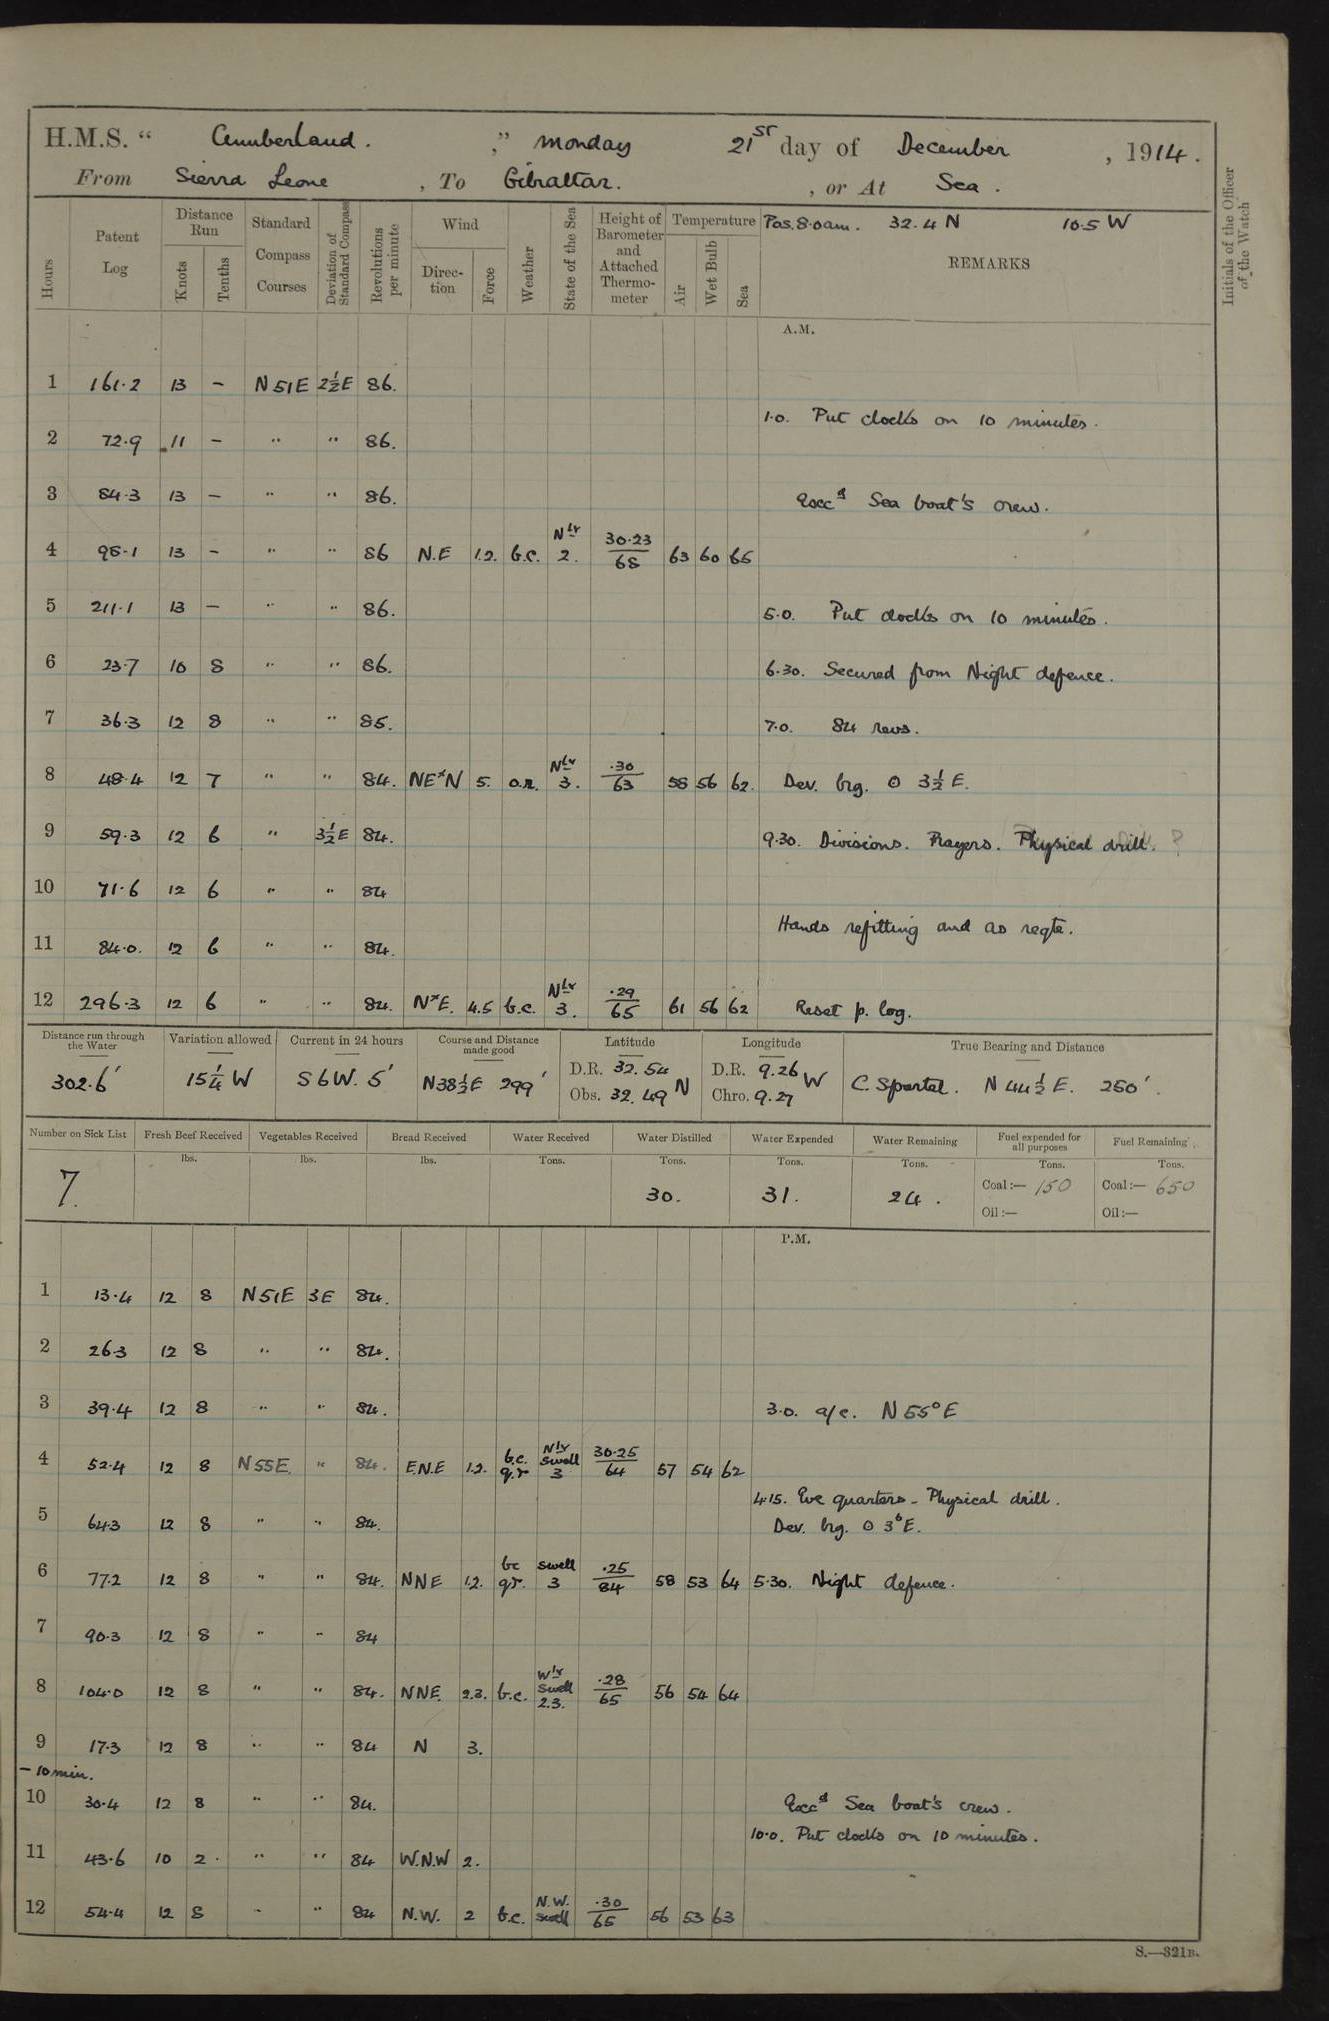 H.M.S. “ Cumberland. ,” Monday 21st day of December , 1914.
From Sierra Leone , To Gibraltar. , or At Sea.
Hours
Patent Log
Distance Run
Knots
Tenths
Standard Compass Courses
Deviation of Standard Compass
Revolutions per minute
Wind
Direction
Force
Weather
State of the Sea
Height of Barometer and Attached Thermometer
Temperature
Air
Wet Bulb
Sea
Pos. 8.0am. 32.4 N 10.5 W
REMARKS
Initials of the Officer of the Watch
A.M.
1 161.2 13 - N 51 E 2½E 86.
1.0. Put clocks on 10 minutes.
2 72.9 11 - " " 86.
3 84.3 13 - " " 86.
Excd Sea boat's crew.
4 98.1 13 - " " 86 N.E 1.2. b.c. Nly 2. 30.23/68 63 60 65
5 211.1 13 - " " 86.
5.0. Put clocks on 10 minutes.
6 23.7 10 8 " " 86.
6.30. Secured from Night defence.
7 36.3 12 8 " " 85.
7.0. 84 revs.
8 48.4 12 7 " " 84. NExN 5. o.r. Nly 3. .30/63 58 56 62. Dev. brg. ⊙ 3½ E.
9 59.3 12 6 " 3½E 84.
9.30. Divisions. Prayers. Physical drill.
10 71.6 12 6 " " 84
Hands refitting and as reqte.
11 84.0. 12 6 " " 84.
12 296.3 12 6 " " 84. NxE. 4.5 b.c. Nly 3. .29/65 61 56 62 Reset p. log.
Distance run through the Water
302.6'
Variation allowed
15¼ W
Current in 24 hours
S 6 W. 5'
Course and Distance made good
N38½E 299'
Latitude
D.R. 32.54
Obs. 32.49 N
Longitude
D.R. 9.26
Chro. 9.27 W
True Bearing and Distance
C. Spartel. N 44½ E. 250'.
Number on Sick List
7.
Fresh Beef Received
lbs.
Vegetables Received
lbs.
Bread Received
lbs.
Water Received
Tons.
Water Distilled
Tons.
30.
Water Expended
Tons.
31.
Water Remaining
Tons.
24.
Fuel expended for all purposes
Tons.
Coal:— 150
Oil:—
Fuel Remaining
Tons.
Coal:— 650
Oil:—
P.M.
1 13.4 12 8 N51E 3E 84.
2 26.3 12 8 " " 84.
3 39.4 12 8 " " 84. 3.0. a/c. N 55° E
4 52.4 12 8 N55E. " 84. E.N.E 1.2. b.c. q.r Nly swell 3 30.25/64 57 54 62
4.15. Eve quarters - Physical drill.
5 64.3 12 8 " " 84. Dev. brg. ⊙ 3° E.
6 77.2 12 8 " " 84. NNE 1.2. bc qr. swell 3 .25/84 58 53 64 5.30. Night defence.
7 90.3 12 8 " " 84
8 104.0 12 8 " " 84. NNE. 2.3. b.c. Wly swell 2.3. .28/65 56 54 64
9 17.3 12 8 " " 84 N 3.
- 10 min.
10 30.4 12 8 " " 84. Excd Sea boat's crew.
10.0. Put clocks on 10 minutes.
11 43.6 10 2. " " 84 W.N.W 2.
12 54.4 12 8 " " 84 N.W. 2 b.c. N.W. swell .30/65 56 53 63
S.—321B.